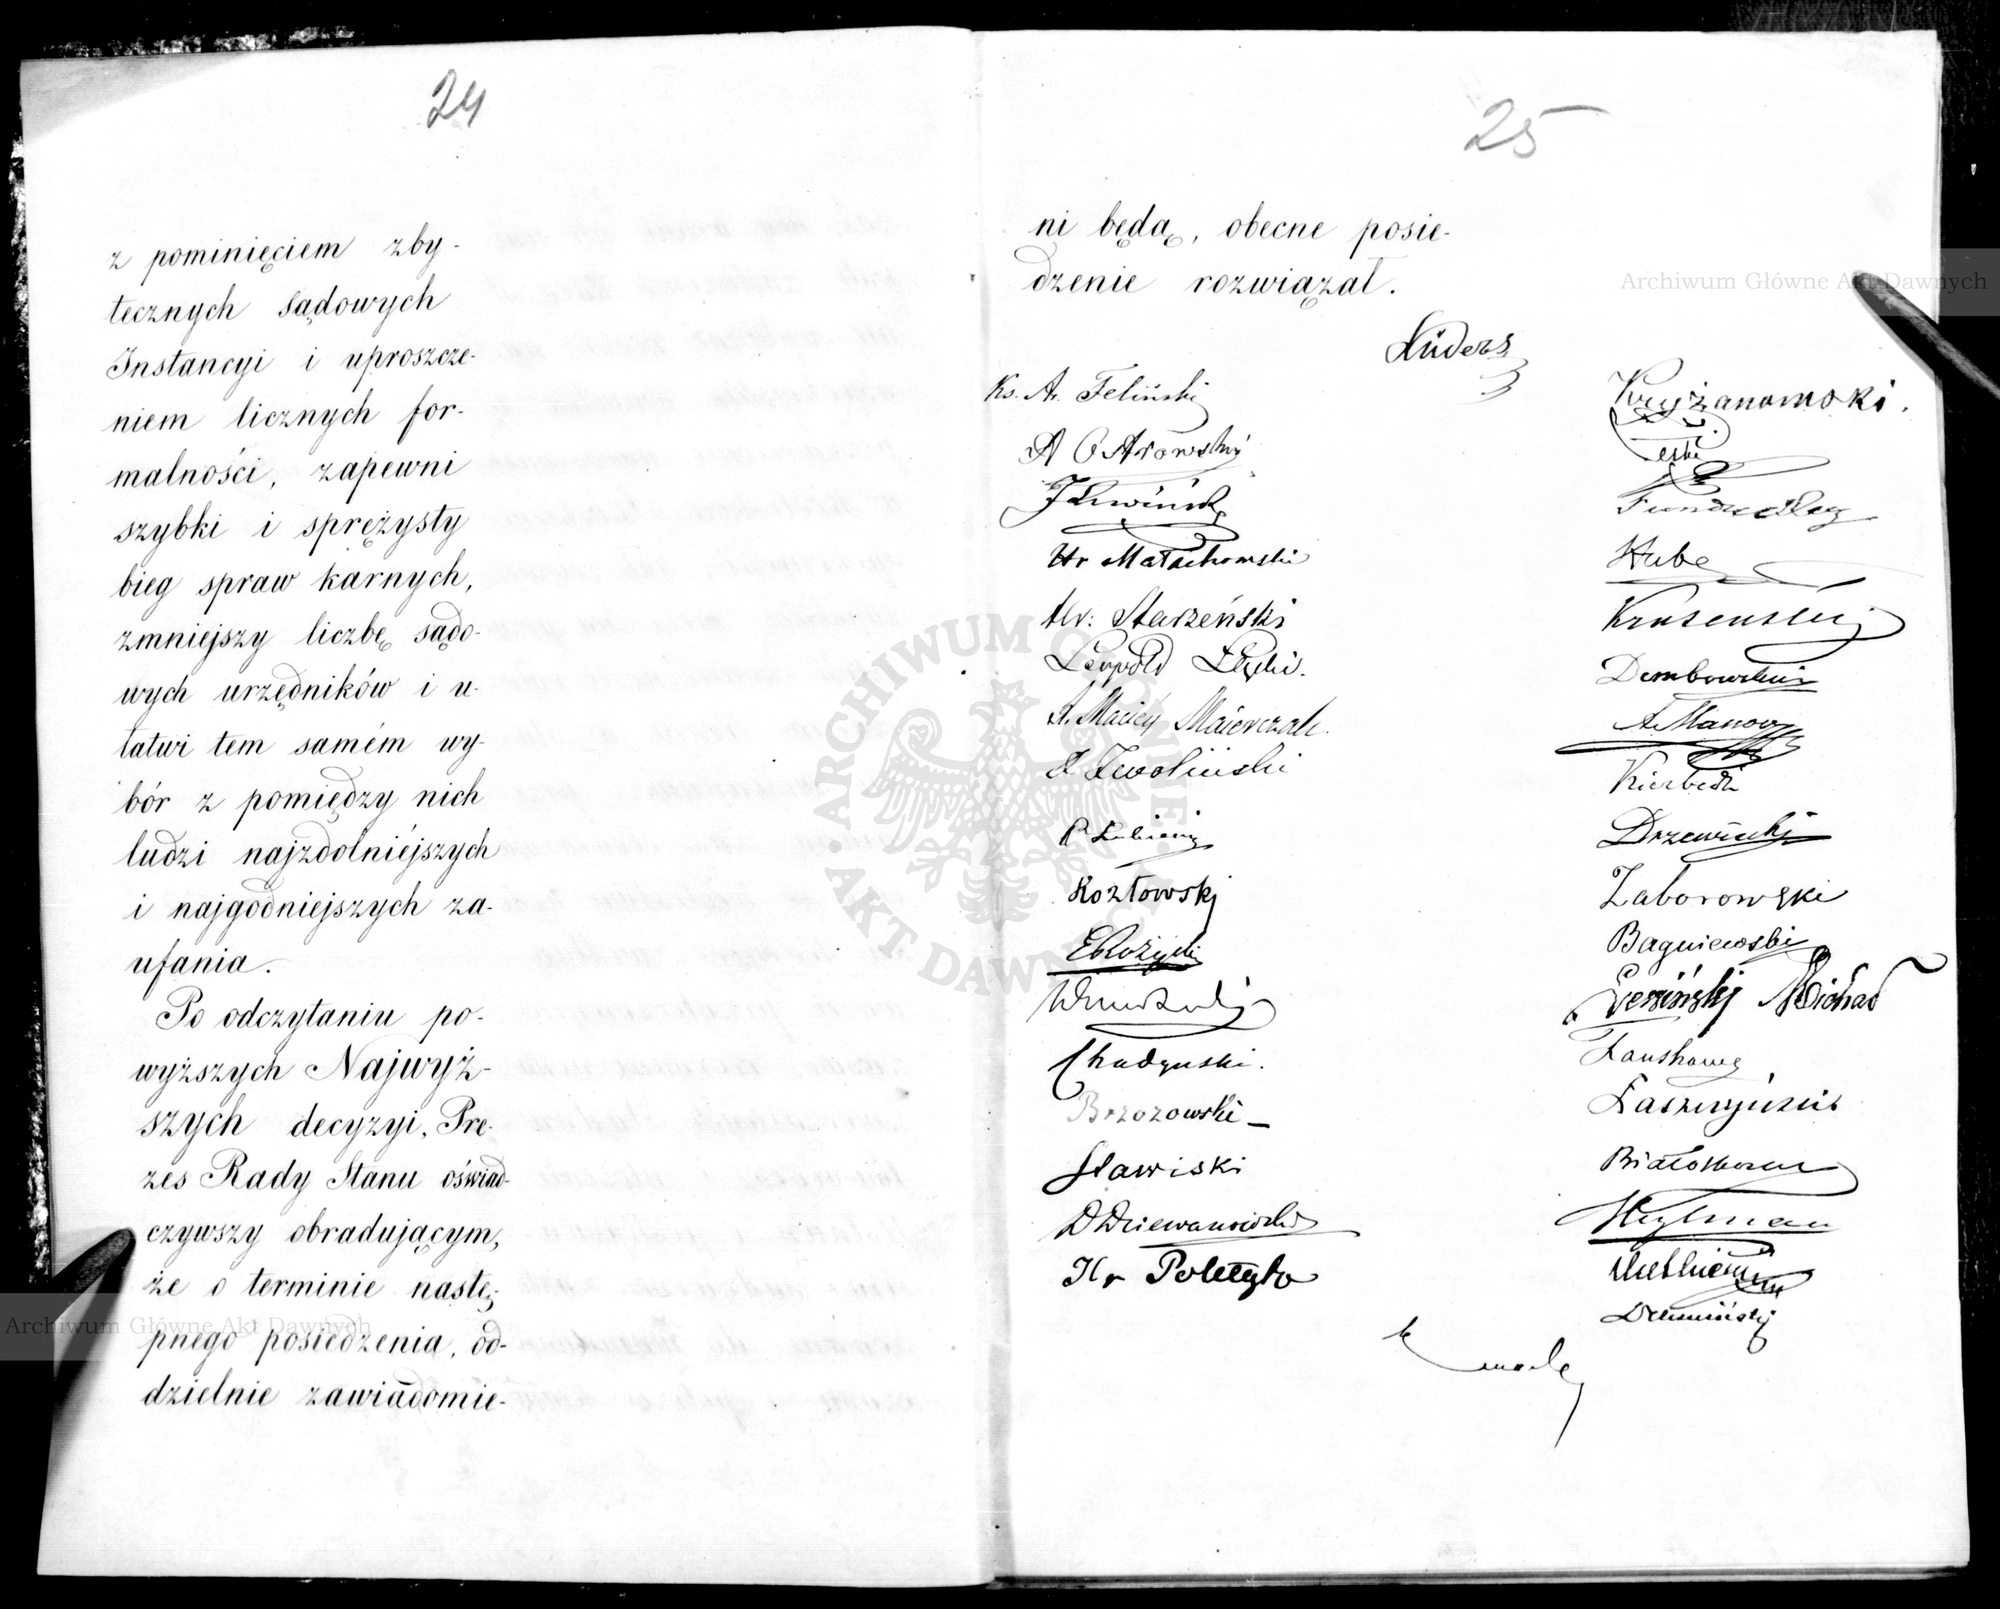 24
z pominięciem zby-
tecznych sądowych
Instancyi i uproszcze-
niem licznych for-
malności, zapewni
szybki i sprężysty
bieg spraw karnych,
zmniejszy liczbę sądo-
wych urzędników i u-
łatwi tem samém wy-
bór z pomiędzy nich
ludzi najzdolniéjszych
i najgodniejszych za-
ufania.
Po odczytaniu po-
wyższych Najwyż-
szych decyzyi, Pre-
zes Rady Stanu oświad-
czywszy obradującym,
że o terminie nastę-
pnego posiedzenia, od-
dzielnie zawiadomie-
25
ni będą, obecne posie-
dzenie rozwiązał.
Lüders
Ks. A. Feliński
A Ostrowski
J Lewiński
Hr Małachowski
Hr: Starzeński
Leopold
X. Maciej Majerczak
X Zwoliński
P Łubieński
Kozłowski
E Różycki
Chądzyński.
Brzozowski
Sławiski
D Dziewanowski
Hr Poletyło
Kryżanowski.
Hube
Kruzenstern
Dembowski
Kierbedź
Drzewiecki
Zaborowski
Bagniewski
Michał
Łaszczyński
Białoskórski
Heylman
Archiwum Główne Akt Dawnych
Archiwum Główne Akt Dawnych
ARCHIWUM GŁÓWNE AKT DAWNYCH